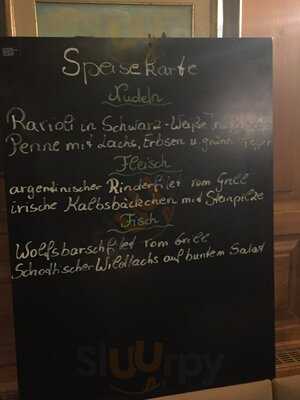 Speisekarte
Nudeln
Ravioli in Schwarz-Weiße
Penne mit Lachs, Erbsen u.
Fleisch
argentinischer Rinderfilet vom Grill
irische Kalbsbäckchen mit Steinpilze
Fisch
Wolfsbarschfilet vom Grill
Schottischer Wildlachs auf buntem Salat
Sluurpy